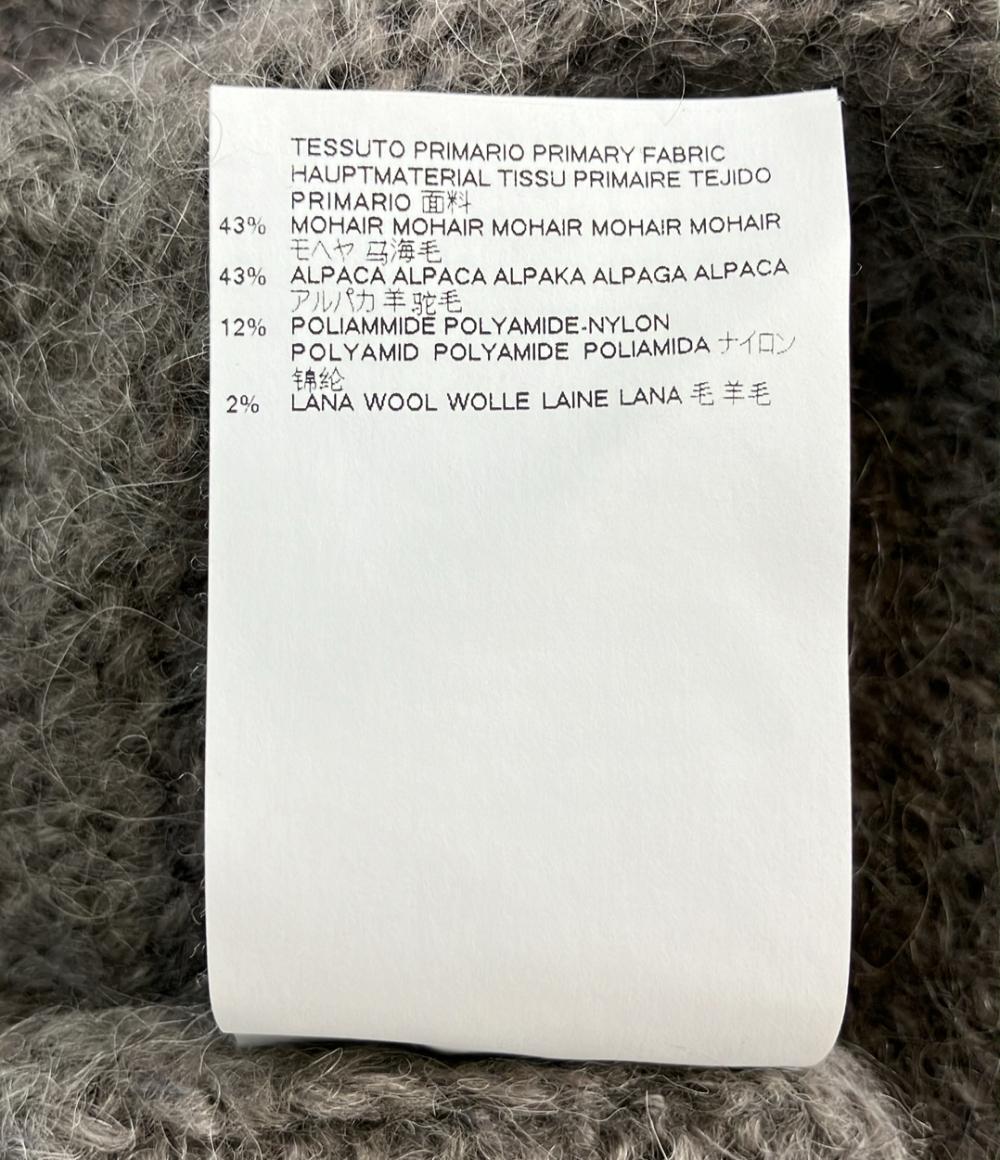 TESSUTO PRIMARIO PRIMARY FABRIC
HAUPTMATERIAL TISSU PRIMAIRE TEJIDO
PRIMARIO 面料
43% MOHAIR MOHAIR MOHAIR MOHAIR MOHAIR
モヘヤ 马海毛
43% ALPACA ALPACA ALPAKA ALPAGA ALPACA
アルパカ 羊驼毛
12% POLIAMMIDE POLYAMIDE-NYLON
POLYAMID POLYAMIDE POLIAMIDA ナイロン
锦纶
2% LANA WOOL WOLLE LAINE LANA 毛 羊毛